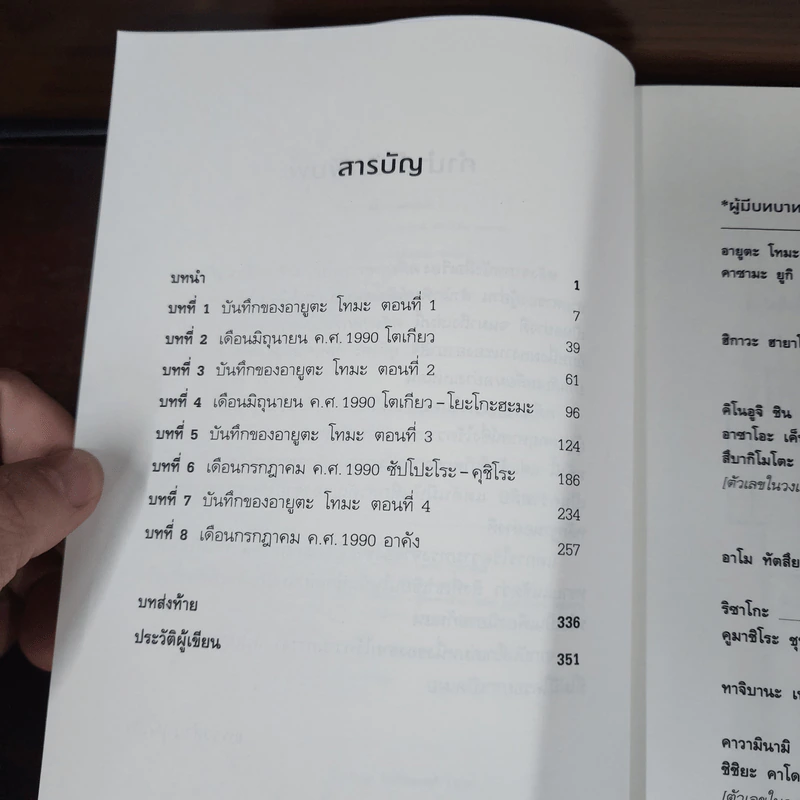 สารบัญ
บทนำ 1
บทที่ 1 บันทึกของอายูตะ โทมะ ตอนที่ 1 7
บทที่ 2 เดือนมิถุนายน ค.ศ. 1990 โตเกียว 39
บทที่ 3 บันทึกของอายูตะ โทมะ ตอนที่ 2 61
บทที่ 4 เดือนมิถุนายน ค.ศ. 1990 โตเกียว – โยะโกะฮะมะ 96
บทที่ 5 บันทึกของอายูตะ โทมะ ตอนที่ 3 124
บทที่ 6 เดือนกรกฎาคม ค.ศ. 1990 ซัปโปะโระ – คุชิโระ 186
บทที่ 7 บันทึกของอายูตะ โทมะ ตอนที่ 4 234
บทที่ 8 เดือนกรกฎาคม ค.ศ. 1990 อาคัง 257
บทส่งท้าย 336
ประวัติผู้เขียน 351
*ผู้มีบทบาท
อายูตะ โทมะ
คาซามะ ยูกิ
ฮิกาวะ
คิโนอูจิ ชิน
อาซาโอะ
สึบากิโมโตะ
[ตัวเลขในวงเ
อาโม ทัตสึย
ริซาโกะ
คูมาชิโระ
ทาจิบานะ
คาวามินามิ
ชิชิยะ คาโด
[ตัวเลขในวงเ